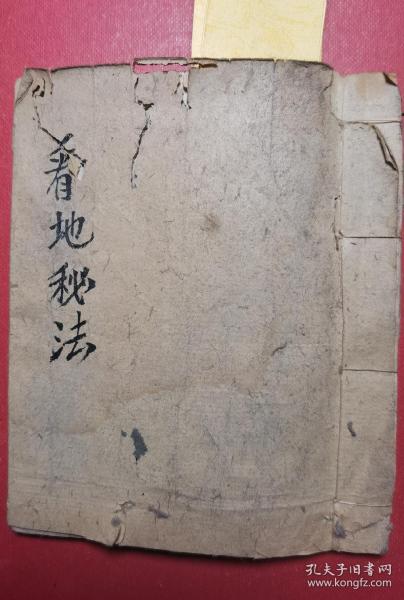 看地秘法
孔夫子旧书网
www.kongfz.com